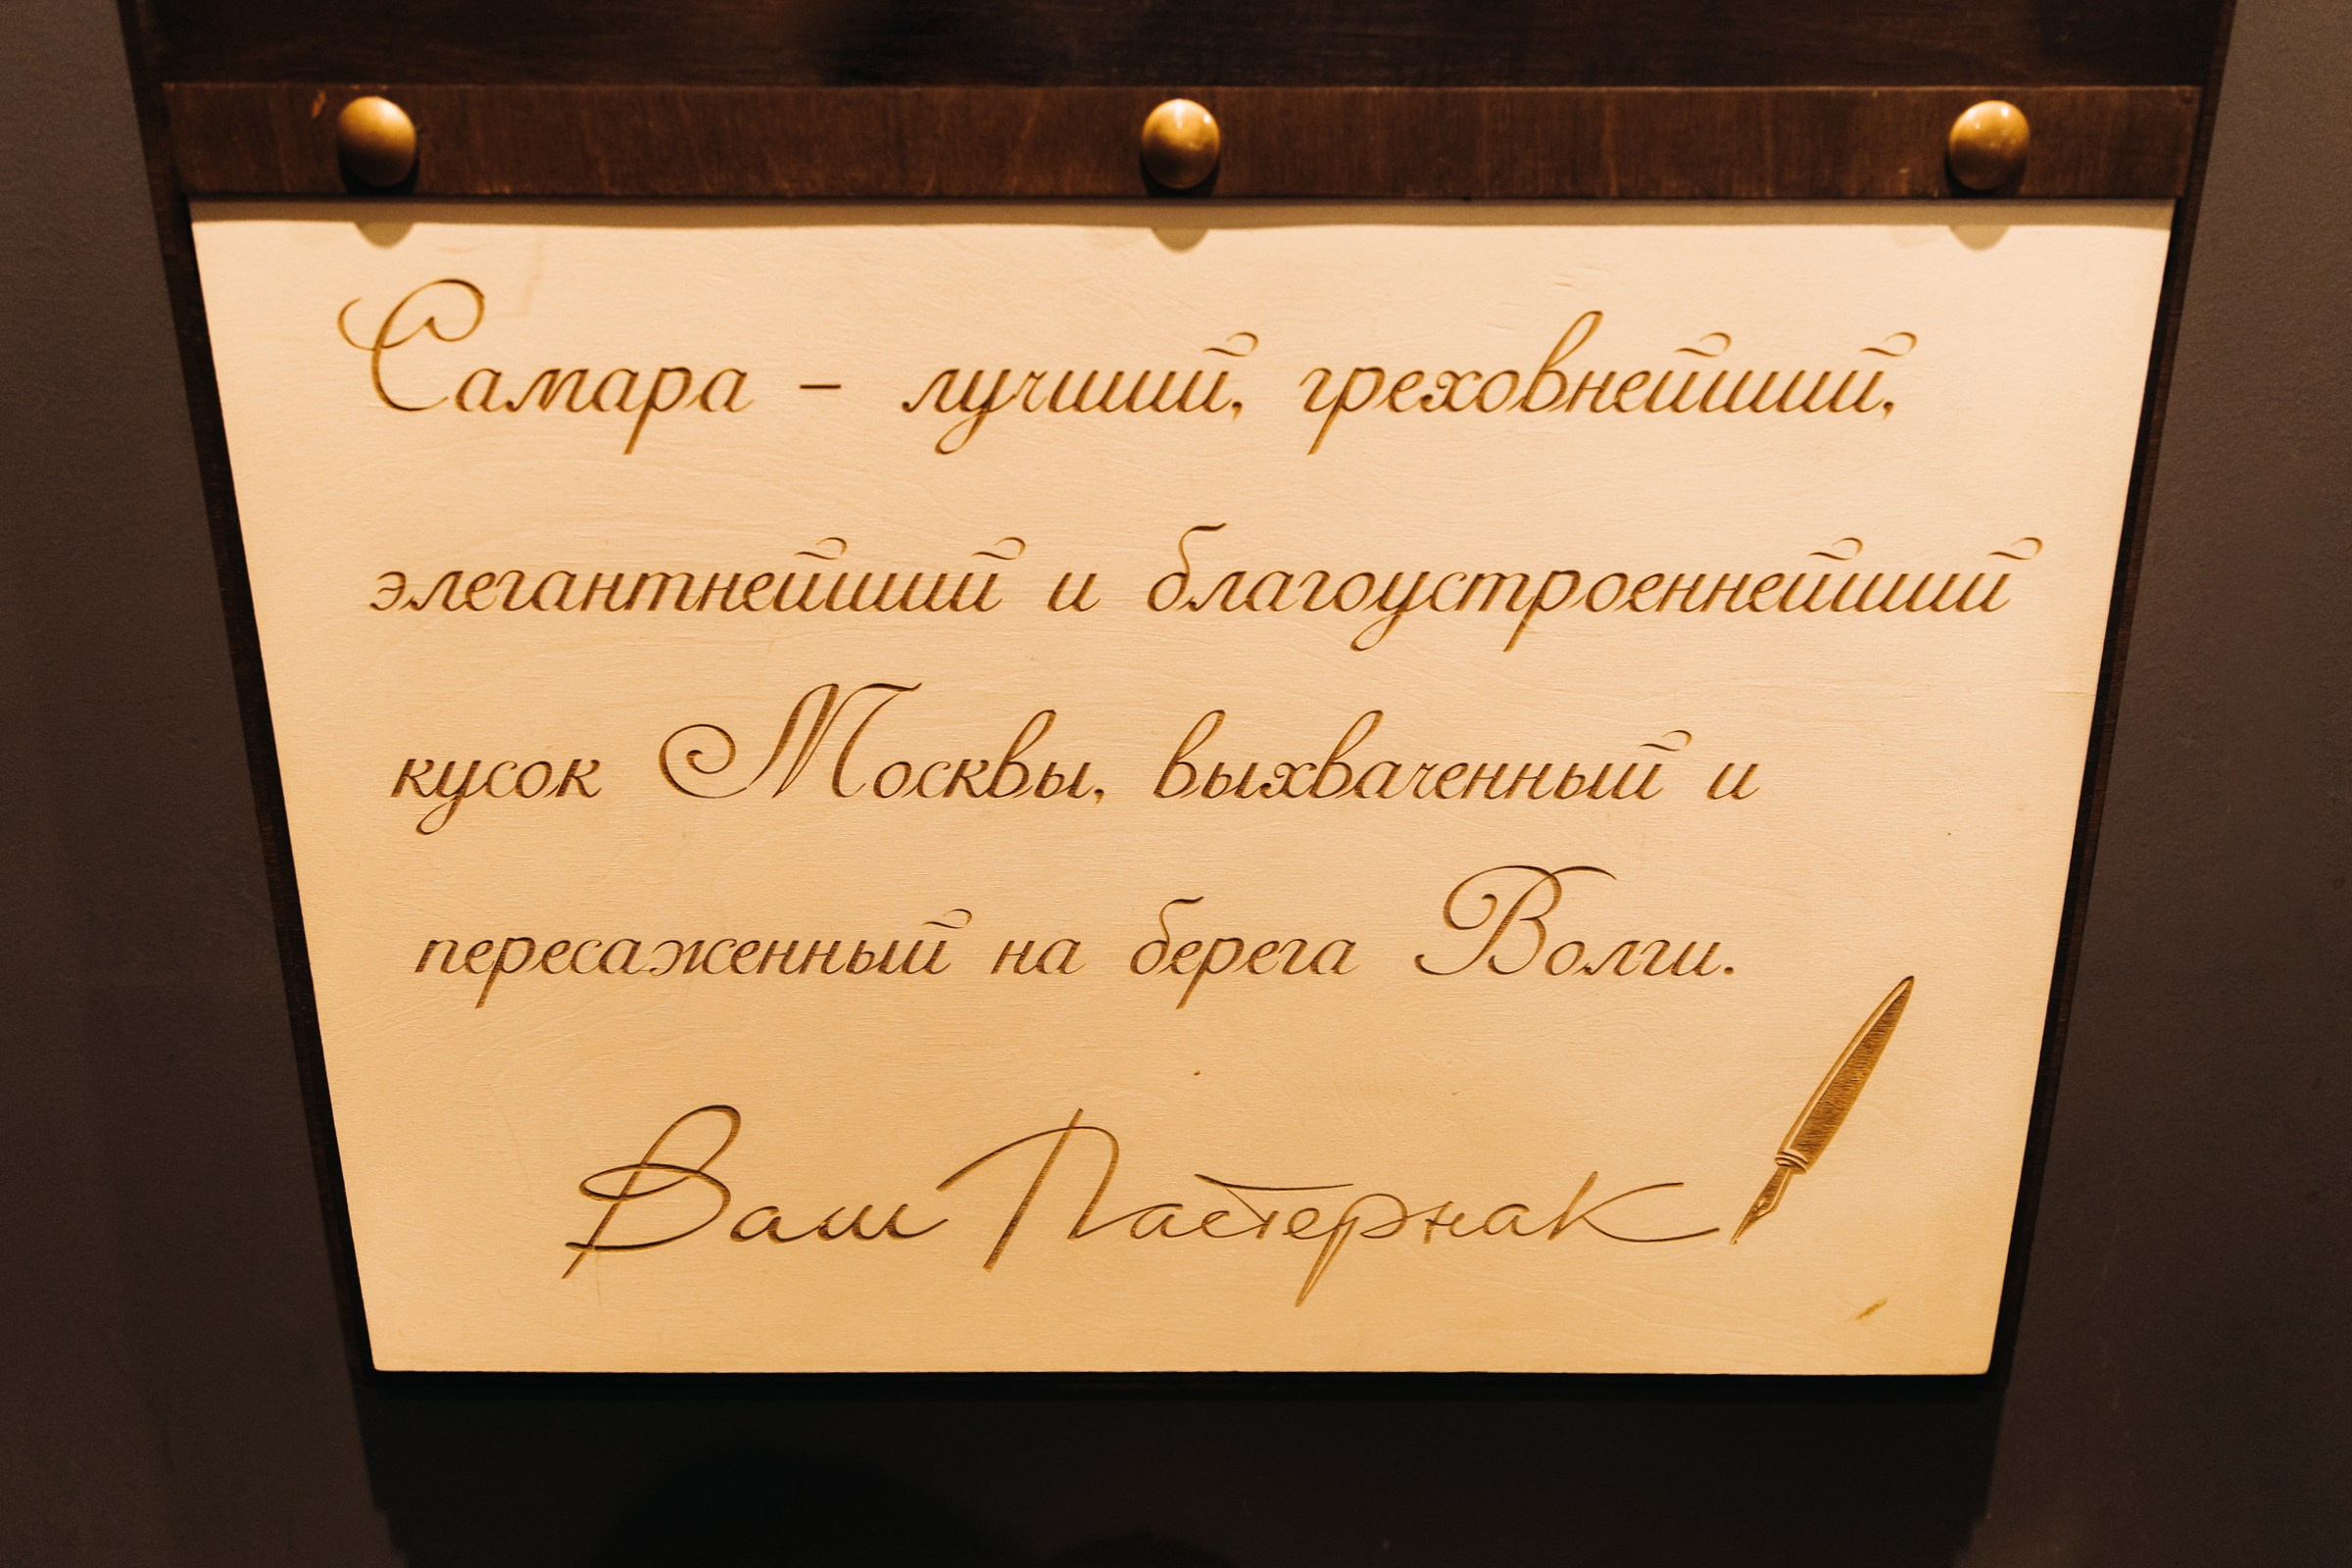 Самара – лучший, греховнейший,
элегантнейший и благоустроеннейший
кусок Москвы, выхваченный и
пересаженный на берега Волги.
Ваш Пастернак